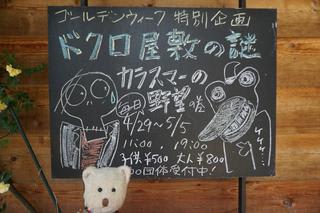 ゴールデンウィーク 特別企画
ドクロ屋敷の謎
カラスマーの
野望の巻
毎日
4/29～5/5
11:00, 19:00
子供¥500 大人¥800
団体受付中!
ケケケ…